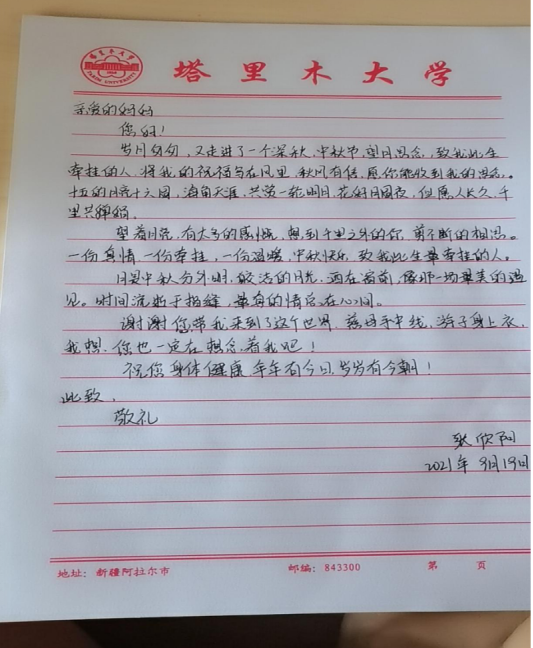 塔里木大学
TARIM UNIVERSITY
塔里木大学
亲爱的妈妈
您好!
岁月匆匆,又走进了一个深秋,中秋节,望月思念,致我此生
牵挂的人,将我的祝福写在风里,秋风有信,愿你能收到我的思念。
十五的月亮十六圆,海角天涯,共赏一轮明月,花好月圆夜,但愿人长久,千
里共婵娟。
望着月亮,有太多的感慨,想到千里之外的你,剪不断的相思。
一份身情,一份牵挂,一份温暖,中秋快乐,致我此生最牵挂的人。
月是中秋分外明,皎洁的月光,洒在窗前,像那一场最美的遇
见。时间流逝于指缝,最真的情应在心间。
谢谢您,带我来到了这个世界,慈母手中线,游子身上衣,
我想,您也一定在想念着我吧!
祝您身体健康 年年有今日,岁岁有今朝!
此致,
敬礼
张欣阳
2021年9月19日
地址:新疆阿拉尔市 邮编:843300 第 页